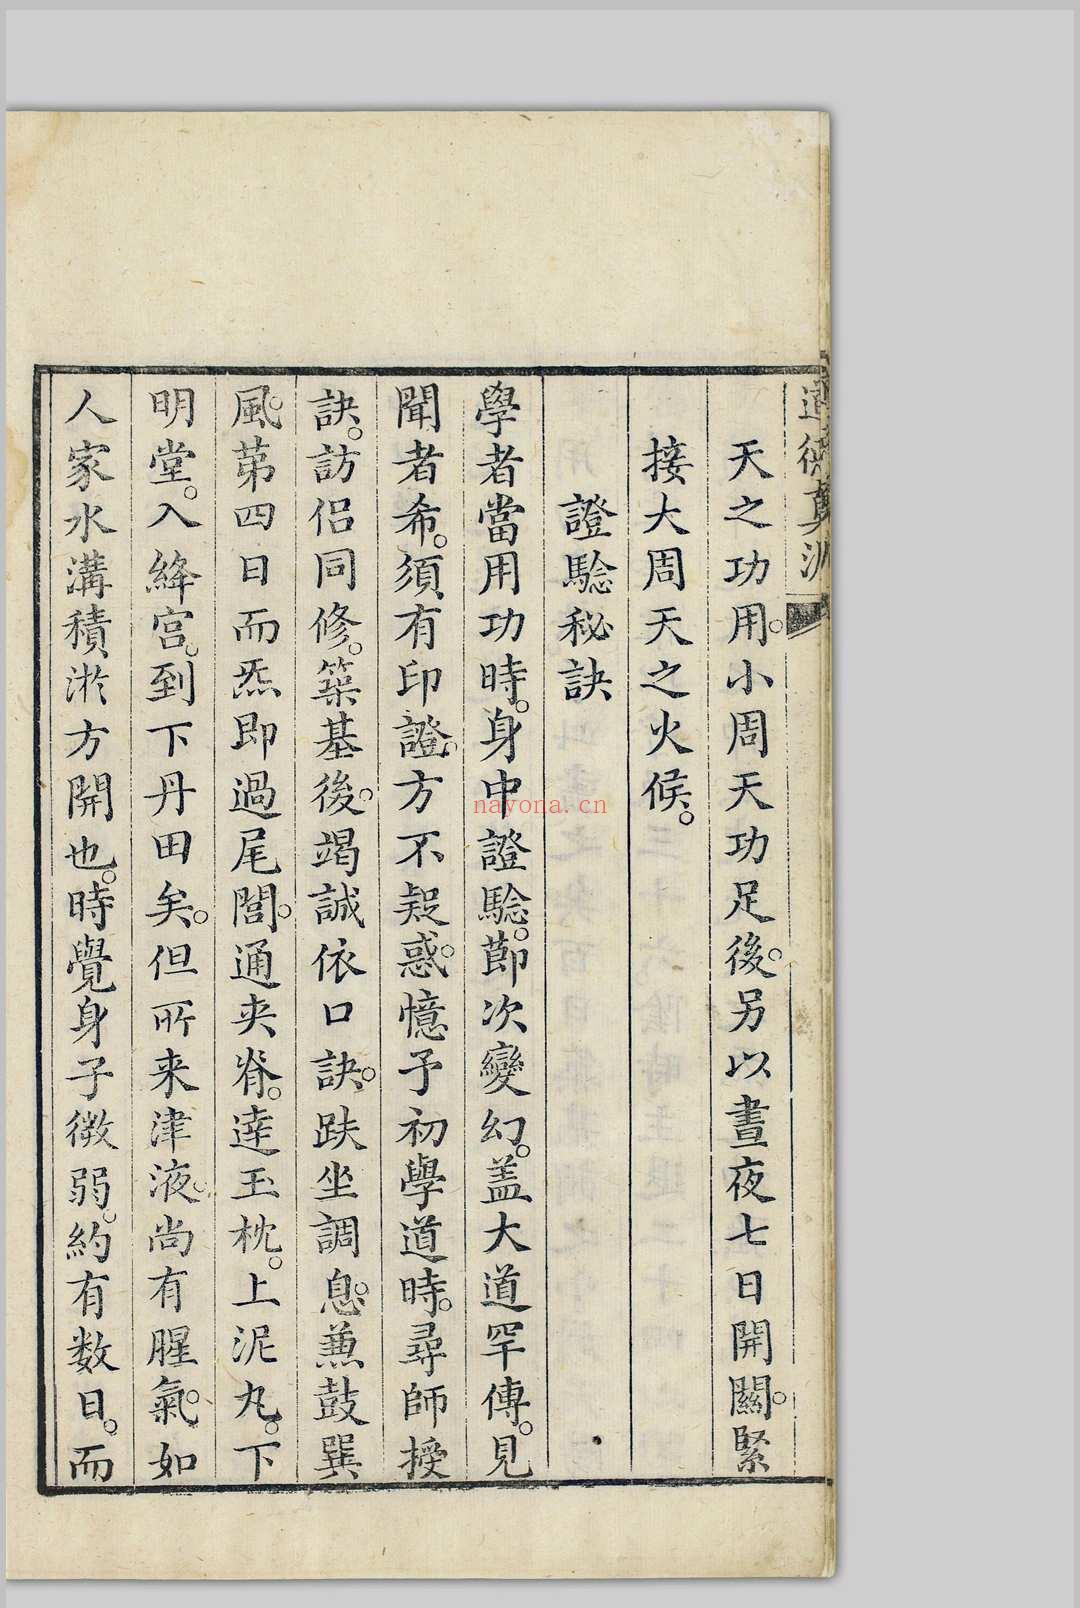 天之功用。小周天功足後。另以晝夜七日開關。緊
接大周天之火候。
證驗秘訣
學者當用功時。身中證驗。節次變幻。蓋大道罕傳。見
聞者希。須有印證。方不疑惑。憶予初學道時。尋師授
訣。訪侶同修。築基後。竭誠依口訣。趺坐調息。兼鼓巽
風。苐四日而炁即過尾閭。通夾脊。逹玉枕。上泥丸。下
明堂。入絳宮。到下丹田矣。但所来津液。尚有腥氣。如
人家水溝積淤方開也。時覺身子微弱。約有数日。而
nayona.cn